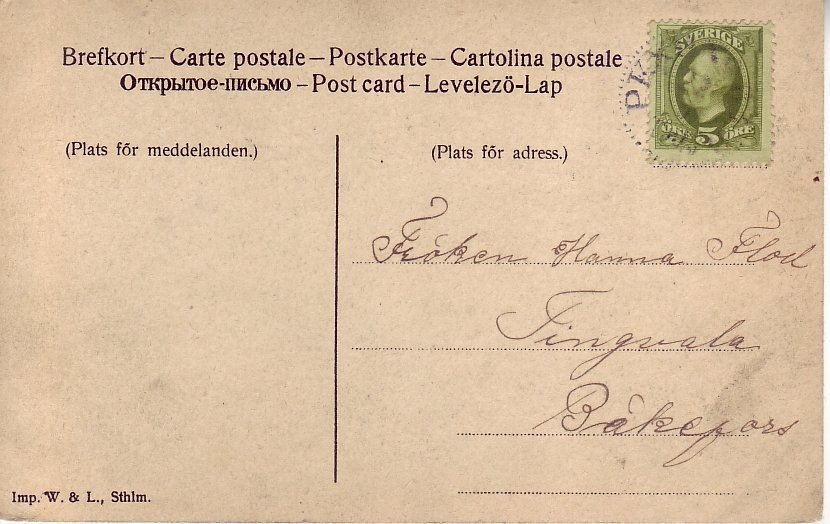 Brefkort – Carte postale – Postkarte – Cartolina postale
Открытое-письмо – Post card – Levelezö-Lap
SVERIGE
ÖRE 5 ÖRE
(Plats för meddelanden.)
(Plats för adress.)
Fröken Hanna Flod
Tingvala
Bäckefors
Imp. W. & L., Sthlm.